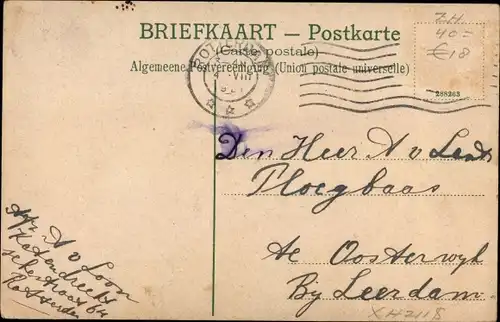 BRIEFKAART — Postkarte
(Carte postale)
Algemeene Postvereeniging (Union postale universelle)
Z.H.
40=
€18
288263
Den Heer A v
Ploegbaas
te Oosterwyk
By Leerdam.
XH2118
Afz A v Loon
Katendrecht
64
Rotterdam